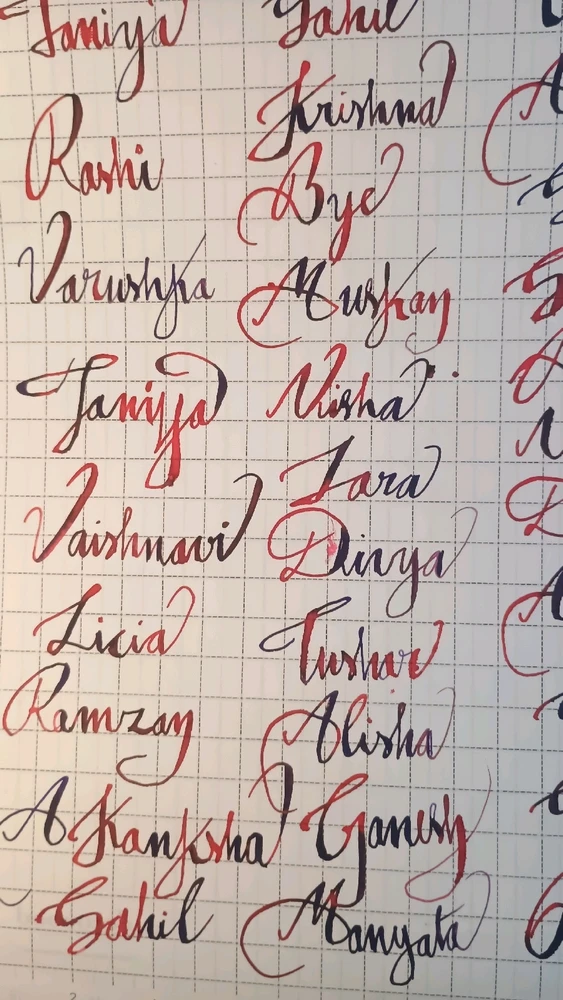 Taniya Sahil
Rashi Krishna
Bye
Varushka Muskan
Taniya Nisha
Zara
Vaishnavi Divya
Licia Tushar
Ramzan Alisha
AKanksha Ganesh
Sahil Manyata